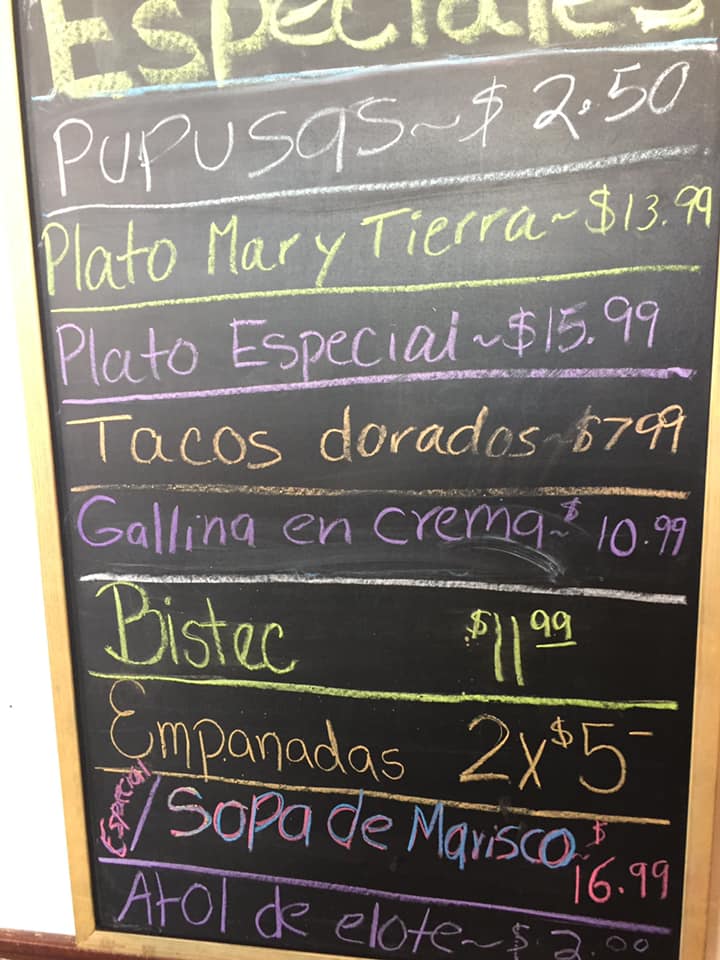 Especiales
Pupusas ~ $2.50
Plato Mar y Tierra ~ $13.99
Plato Especial ~ $15.99
Tacos dorados ~ $7 99
Gallina en crema ~ $10.99
Bistec $11 99
Empanadas 2x$5-
Especial / Sopa de Marisco ~ $16.99
Atol de elote ~ $3.00